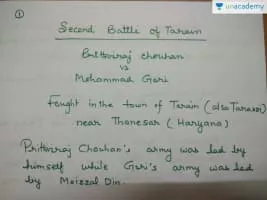 unacademy
①
Second Battle of Tarain
Prithviraj chouhan
vs
Mohammad Gori
Fought in the town of Tarain (also Taraori)
near Thanesar (Haryana)
Prithviraj Chouhan's army was led by
himself while Gori's army was led
by Moizzal Din.